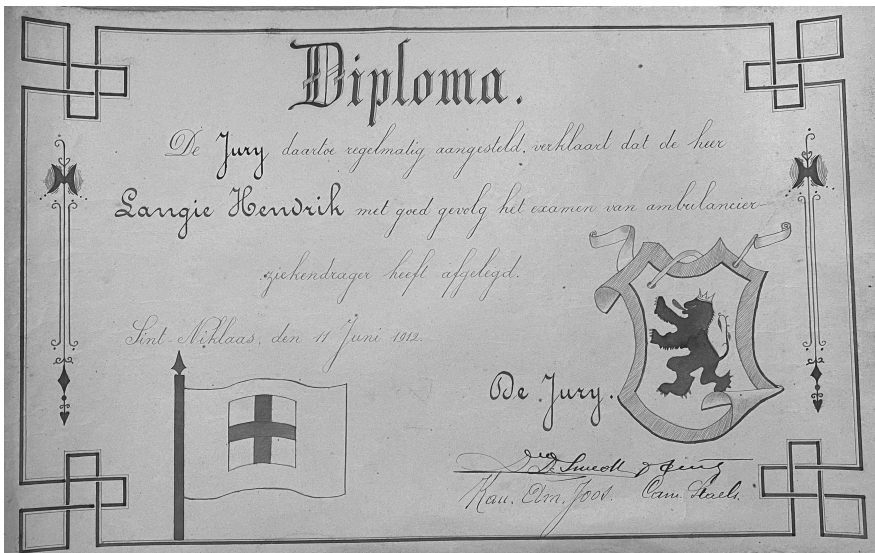 Diploma.
De Jury daartoe regelmatig aangesteld, verklaart dat de heer
Langie Hendrik met goed gevolg het examen van ambulancier-
ziekendrager heeft afgelegd.
Sint-Niklaas, den 11 Juni 1912.
De Jury.
Kan. Edm. Joos. Cam. Staels.